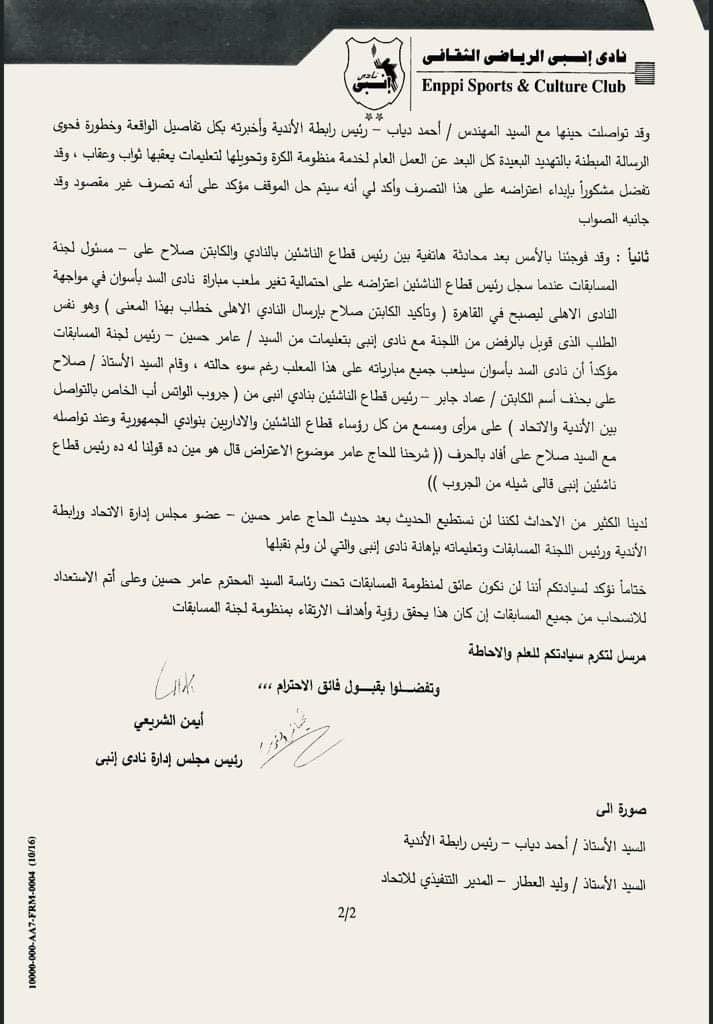 نادى إنبى الرياضى الثقافى
Enppi Sports & Culture Club
نادى
إنبى
وقد تواصلت حينها مع السيد المهندس / أحمد دياب – رئيس رابطة الأندية وأخبرته بكل تفاصيل الواقعة وخطورة فحوى
الرسالة المبطنة بالتهديد البعيدة كل البعد عن العمل العام لخدمة منظومة الكرة وتحويلها لتعليمات يعقبها ثواب وعقاب ، وقد
تفضل مشكوراً بإبداء اعتراضه على هذا التصرف وأكد لي أنه سيتم حل الموقف مؤكد على أنه تصرف غير مقصود وقد
جانبه الصواب
ثانياً : وقد فوجئنا بالأمس بعد محادثة هاتفية بين رئيس قطاع الناشئين بالنادي والكابتن صلاح على – مسئول لجنة
المسابقات عندما سجل رئيس قطاع الناشئين اعتراضه على احتمالية تغير ملعب مباراة نادى السد بأسوان في مواجهة
النادى الاهلى ليصبح في القاهرة ( وتأكيد الكابتن صلاح بإرسال النادي الاهلى خطاب بهذا المعنى ) وهو نفس
الطلب الذى قوبل بالرفض من اللجنة مع نادى إنبى بتعليمات من السيد / عامر حسين – رئيس لجنة المسابقات
مؤكداً أن نادى السد بأسوان سيلعب جميع مبارياته على هذا المعلب رغم سوء حالته ، وقام السيد الأستاذ / صلاح
على بحذف أسم الكابتن / عماد جابر – رئيس قطاع الناشئين بنادي انبى من ( جروب الواتس أب الخاص بالتواصل
بين الأندية والاتحاد ) على مرأى ومسمع من كل رؤساء قطاع الناشئين والاداريين بنوادي الجمهورية وعند تواصله
مع السيد صلاح على أفاد بالحرف (( شرحنا للحاج عامر موضوع الاعتراض قال هو مين ده قولنا له ده رئيس قطاع
ناشئين إنبى قالى شيله من الجروب ))
لدينا الكثير من الاحداث لكننا لن نستطيع الحديث بعد حديث الحاج عامر حسين – عضو مجلس إدارة الاتحاد ورابطة
الأندية ورئيس اللجنة المسابقات وتعليماته بإهانة نادى إنبى والتي لن ولم نقبلها
ختاماً نؤكد لسيادتكم أننا لن نكون عائق لمنظومة المسابقات تحت رئاسة السيد المحترم عامر حسين وعلى أتم الاستعداد
للانسحاب من جميع المسابقات إن كان هذا يحقق رؤية وأهداف الارتقاء بمنظومة لجنة المسابقات
مرسل لتكرم سيادتكم للعلم والاحاطة
وتفضـــلوا بقبـــول فائق الاحترام ،،،
أيمن الشريعي
رئيس مجلس إدارة نادى إنبى
صورة الى
السيد الأستاذ / أحمد دياب – رئيس رابطة الأندية
السيد الأستاذ / وليد العطار – المدير التنفيذي للاتحاد
2/2
10000-000-AA7-FRM-0004 (10/16)